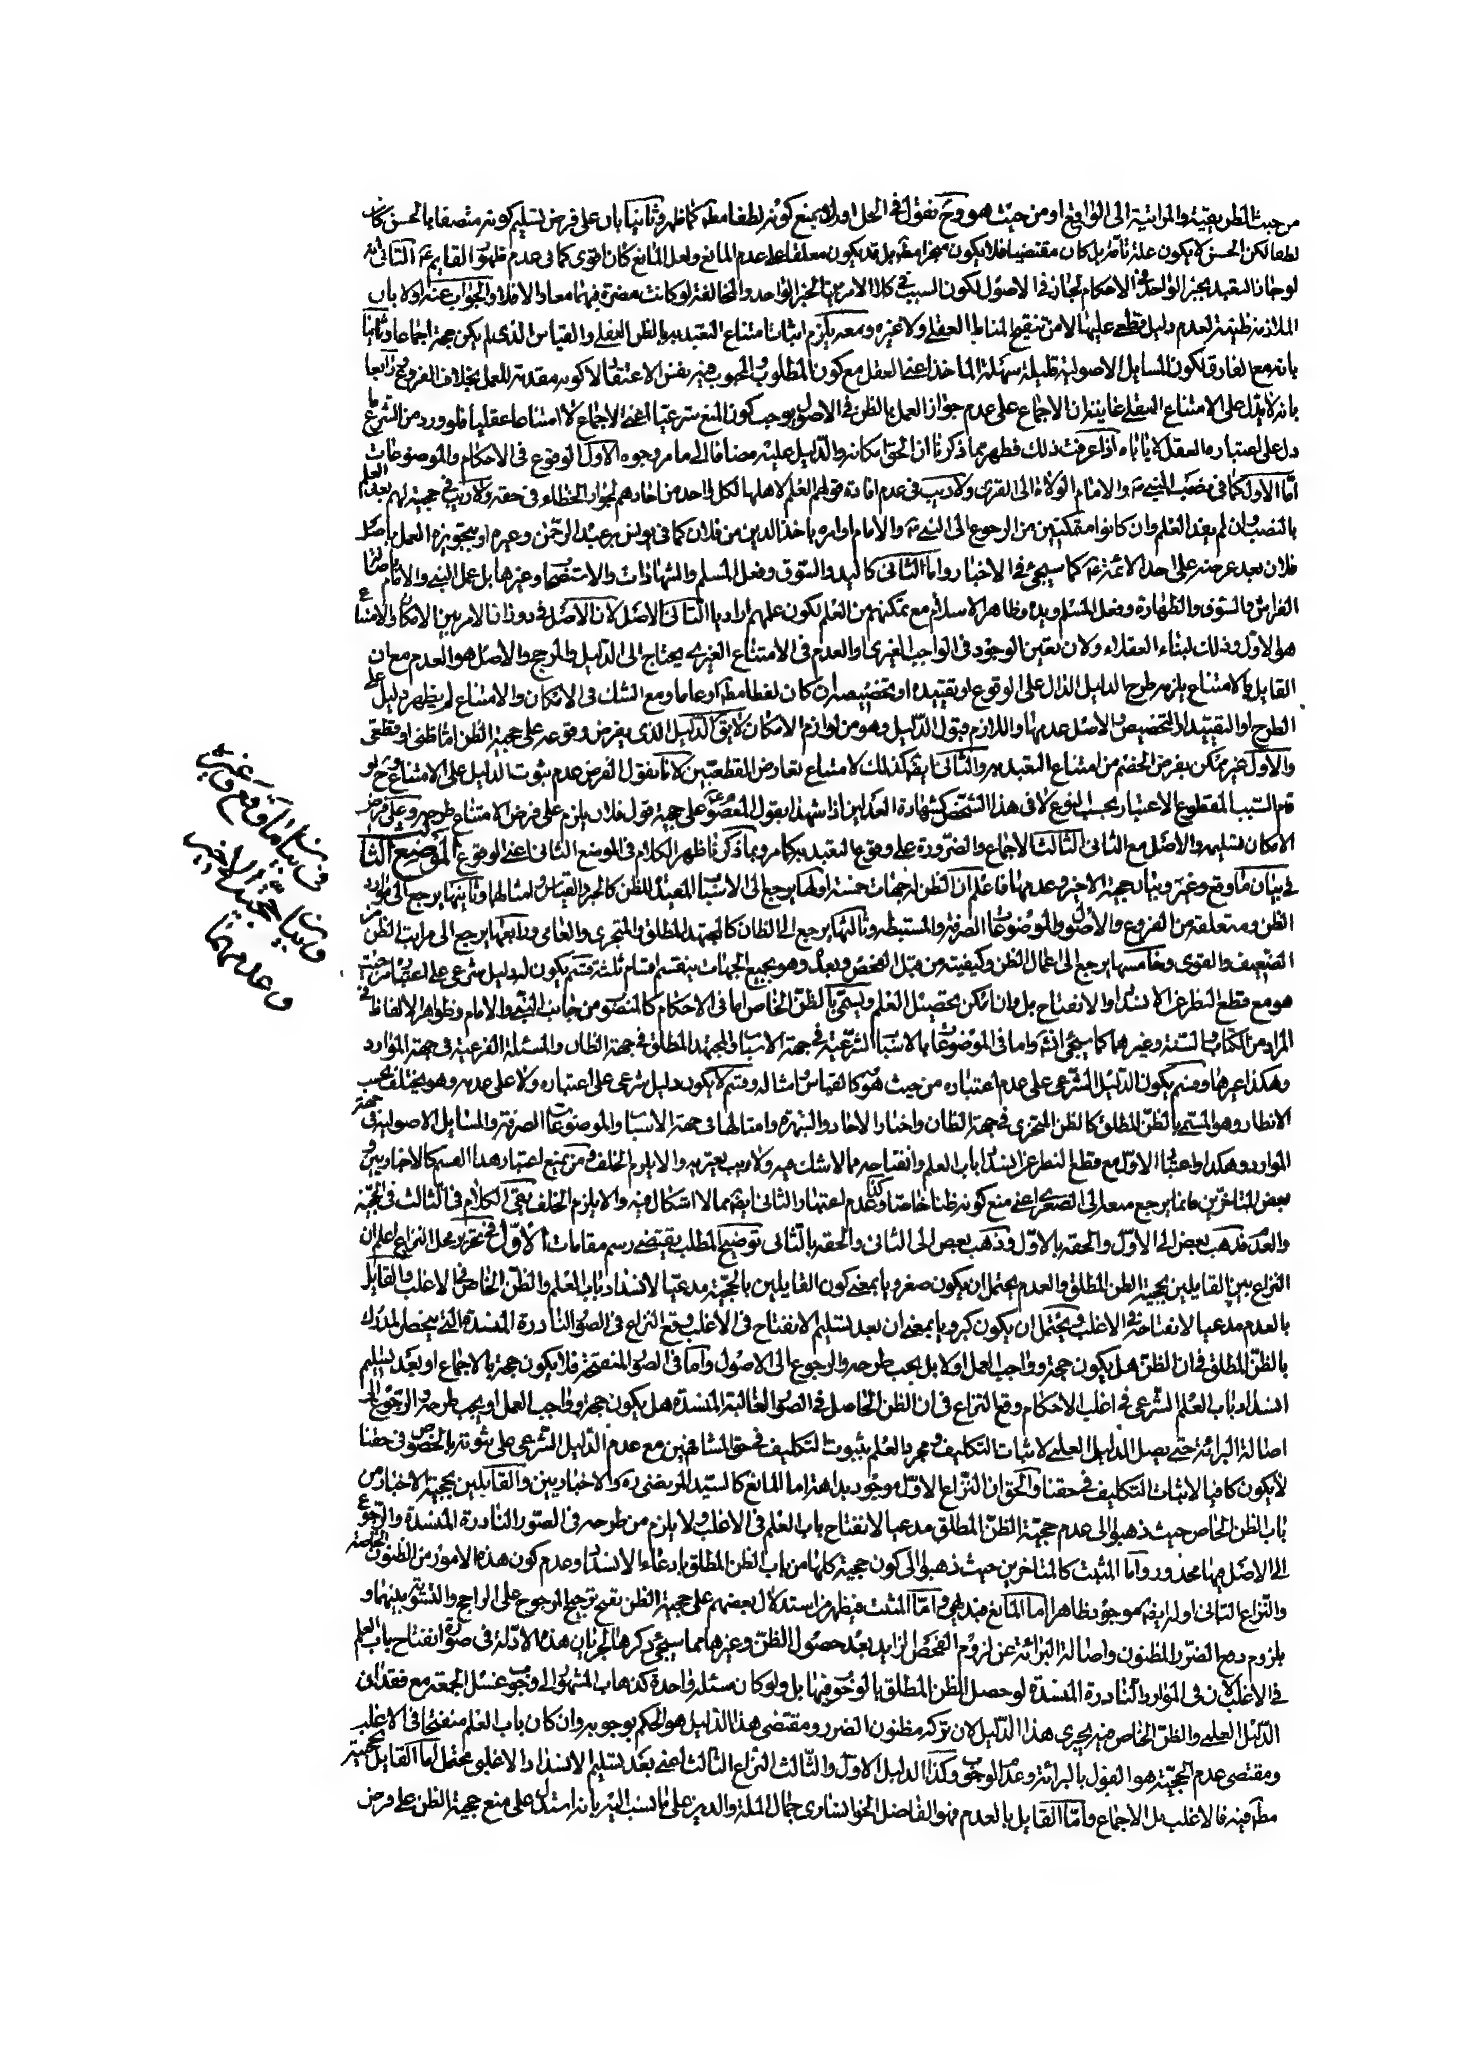 من حيث الظن يقينه والمرآتية الى الواقع او من حيث هو وح نقول فى الحل اولا بمنع كونه لطفا مطه كما ظهر وثانيا بان على فرض تسليم كونه متصفا بالحسن كان
لطفا لكن الحسن لا يكون علة تامة بل كان مقتضيا فلا يكون منجزا مطه بل قد يكون معلقا على عدم المانع ولعل المانع كان اقوى كما فى عدم ظهور القايم عه الثانى انه
لو جاز التعبد بخبر الواحد فى الاحكام لجاز فى الاصول لكون السبب فى كلا الامرين الخبر الواحد والمخالفة لو كانت مضرة فهما معا والا فلا والجواب عنه اولا بان
الملازمة ظنية لعدم دليل قطعى عليها لا من تنقيح المناط العقلى ولا غيره ومعه يلزم اثبات امتناع التعبد به بالظن العقلى والقياس الذى لم يكن حجة اجماعا وثانيا
بانه مع الفارق لكون المسايل الاصولية قليلة سهلة الماخذ اعنى العقل مع كون المطلوب المحبوب فيه نفس الاعتقاد لا كونه مقدمة للعمل بخلاف الفروع ورابعا
بانه لا يدل على الامتناع العقلى غايته ان الاجماع على عدم جواز العمل بالظن فى الاصول يوجب كون المنع شرعيا اعنى الاجماع لا امتناعا عقليا فلو ورد من الشرع ما
دل على اعتباره العقل لا ياباه اذا عرفت ذلك فظهر مما ذكرنا ان الحق امكانه والدليل عليه مضافا الى ما مر وجوه الاول الوقوع فى الاحكام والموضوعات
اما الاول كما فى نصب النبى صه والامام الولاة الى القرى ولا ريب فى عدم افادة قولهم العلم لاهلها لكل واحد من احادهم لجواز الخطاء فى حقه ولا ريب فى حجيته لهم لعدم العلم
بالنصب وان لم يفد العلم وان كانوا متمكنين من الرجوع الى النبى صه والامام او امره باخذ الدين من فلان كما فى يونس بن عبد الرحمن وغيره او بتجويزه العمل باصل
فلان بعد عرضه على احد الائمة عه كما سيجئ فى الاخبار واما الثانى كاليد والسوق وفعل المسلم والشهادات والاستصحاب وغيرها بل عمل النبى والامام باصالة
الفراش والسوق والطهارة وفعل المسلم ويده وظاهر الاسلام مع تمكنهم من العلم لكون علمهم اراديا الثانى الاصل لان الاصل فى دوران الامر بين الامكان والامتناع
هو الاول وذلك لبناء العقلاء ولان تعين الوجود فى الواجب الغيرى او العدم فى الامتناع الغيرى يحتاج الى الدليل والمرجح والاصل هو العدم مع ان
القايل بالامتناع يلزمه طرح الدليل الدال على الوقوع او تقييده او تخصيصه ان كان لفظا مطه او عاما ومع الشك فى الامكان والامتناع لم يظهر دليل على
الطرح او التقييد او التخصيص والاصل عدمها واللازم قبول الدليل وهو من لوازم الامكان لا يق الدليل الذى يفرض وقوعه على حجية الظن اما ظنى او قطعى
والاول غير ممكن بفرض الخصم من امتناع التعبد به والثانى ايضه كذلك لامتناع تعارض القطعيين لانا نقول الفرض عدم ثبوت الدليل على الامتناع وح لو
قام السبب المقطوع الاعتبار بحسب النوع لا فى هذا الشخص كشهادة العدلين اذا شهدا بقول المعصوم على حجية قول فلان يلزم على فرض الامتناع طرحه وعلى فرض
الامكان تسليمه والاصل مع الثانى الثالث الاجماع والضرورة على وقوع التعبد به كما مر وبما ذكرنا ظهر الكلام فى الموضع الثانى اعنى الوقوع الموضع الثالث
فى بيان ما وقع وغيره وبيان حجية الاخير وعدمها فاعلم ان الظن له جهات خمسة اولها يرجع الى الاسباب المفيدة للظن كالخبر والقياس وامثالها وثانيها يرجع الى موارد
الظن ومتعلقه من الفروع والاصول والموضوعات الصرفة والمستنبطة وثالثها يرجع الى الظان كالمجتهد المطلق والمتجزى والعامى ورابعها يرجع الى مراتب الظن من
الضعيف والقوى وخامسها يرجع الى اعمال الظن وكيفيته من قبل الفحص وبعده وهو بجميع الجهات ينقسم اقسام ثلثة قسم يكون الدليل شرعى على اعتباره من حيث
هو مع قطع النظر عن الانسداد والانفتاح بل وان امكن تحصيل العلم ويسمى بالظن الخاص اما فى الاحكام كالمنصوب من جانب النبى والامام وظواهر الالفاظ فى
المراد من الكتاب والسنة وغيرهما كما سيجئ انشه واما فى الموضوعات بالاسباب الشرعية فى جهة الاسباب والمجتهد المطلق فى جهة الظان والمسئلة الفرعية فى جهة الموارد
وهكذا غيرها وقسم يكون الدليل الشرعى على عدم اعتباره من حيث هو كالقياس وامثاله وقسم لا يكون دليل شرعى على اعتباره ولا على عدمه وهو يختلف بحسب
الانظار وهو المسمى بالظن المطلق كالظن المتجزى فى جهة الظان واخبار الاحاد والشهرة وامثالها فى جهة الاسباب والموضوعات الصرفة والمسايل الاصولية فى جهة
الموارد وهكذا واعتبار الاول مع قطع النظر عن انسداد باب العلم وانفتاحه مما لا شك فيه ولا ريب يعتريه والا يلزم الخلف ومن يمنع اعتبار هذا القسم كالاخباريين و
بعض المتاخرين فانما يرجع منعه الى الصغرى اعنى منع كونه ظنا خاصا وكذا عدم اعتبار الثانى ايضه مما لا اشكال فيه والا يلزم الخلف بقى الكلام فى الثالث فى الحجية
والعدم فذهب بعض الى الاول والحقه بالاول وذهب بعض الى الثانى والحقه بالثانى توضيح المطلب يقتضى رسم مقامات الاول فى تحرير محل النزاع اعلم ان
النزاع بين القايلين بحجية الظن المطلق والعدم يحتمل ان يكون صغرويا بمعنى كون القايلين بالحجية مدعيا لانسداد باب العلم والظن الخاص فى الاغلب والقايل
بالعدم مدعيا لانفتاحه فى الاغلب ويحتمل ان يكون كبرويا بمعنى ان بعد تسليم الانفتاح فى الاغلب وقع النزاع فى الصور النادرة المنسدة التى ينحصر المدرك
بالظن المطلق فى ان الظن هل يكون حجة وواجب العمل او لا بل يجب طرحه والرجوع الى الاصول واما فى الصور المنفتحة فلا يكون حجة بالاجماع او بعد تسليم
انسداد باب العلم الشرعى فى اغلب الاحكام وقع النزاع فى ان الظن الحاصل فى الصور الغالبة المنسدة هل يكون حجة وواجب العمل او يجب طرحه والرجوع الى
اصالة البرائة حتى يصل الدليل العلمى لاثبات التكليف ومجرد العلم بثبوت التكليف فى حق المشافهين مع عدم الدليل الشرعى على ثبوته بالخصوص فى حقنا
لا يكون كافيا لاثبات التكليف فى حقنا والحق ان النزاع الاول موجود بداهة اما المانع كالسيد المرتضى ره والاخباريين والقايلين بحجية الاخبار من
باب الظن الخاص حيث ذهبوا الى عدم حجية الظن المطلق مدعيا لانفتاح باب العلم فى الاغلب ولا يلزم من طرحه فى الصور النادرة المنسدة والرجوع
الى الاصل فيها محذور واما المثبت كالمتاخرين حيث ذهبوا الى كون حجية كلها من باب الظن المطلق بادعاء الانسداد وعدم كون هذه الامور من الظنون الخاصة
والنزاع الثانى اوله ايضه موجود ظاهرا اما المانع فبديهى واما المثبت فيظهر من استدلال بعضهم على حجية الظن بقبح ترجيح المرجوح على الراجح والتسوية بينهما و
بلزوم دفع الضرر المظنون واصالة البرائة عن لزوم الفحص الزايد بعد حصول الظن وغيرها مما سيجئ ذكرها لجريان هذه الادلة فى صورة انفتاح باب العلم
فى الاغلب لان فى الموارد النادرة المنسدة لو حصل الظن المطلق بالوجوب فيها بل ولو كان مسئلة واحدة كذهاب المشهور الى وجوب غسل الجمعة مع فقدان
الدليل العلمى والظن الخاص فيه يجرى هذا الدليل لان تركه مظنون الضرر ومقتضى هذا الدليل هو الحكم بوجوبه وان كان باب العلم منفتحا فى الاغلب
ومقتضى عدم الحجية هو القول بالبرائة وعدم الوجوب وكذا الدليل الاول والثالث النزاع الثالث اعنى بعد تسليم الانسداد الاغلبى محتمل اما القايل بحجيته
مطه فيه فالاغلب بل الاجماع واما القايل بالعدم فهو الفاضل الخوانسارى جمال الملة والدين على ما نسب اليه بانه استدل على منع حجية الظن على فرض
فى بيان ما وقع وغيره
وبيان حجية الاخير
وعدمها